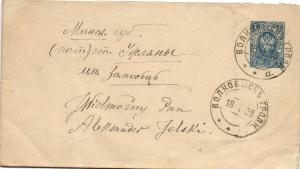 Минск. губ.
(почт) ст. Узляны
им. Замосць
Wielmożny Pan
Aleksander Jelski.
ВОЛКОВЫСКЪ ГРОДН.
а.
ВОЛКОВЫСКЪ ГРОДН.
18
98